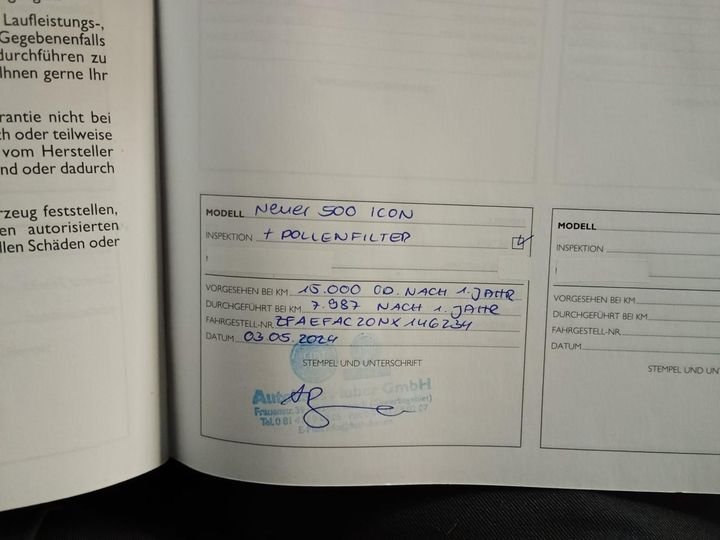 Laufleistungs-,
Gegebenenfalls
durchführen zu
Ihnen gerne Ihr
rantie nicht bei
ch oder teilweise
vom Hersteller
nd oder dadurch
rzeug feststellen,
en autorisierten
llen Schäden oder
MODELL Neuer 500 ICON
INSPEKTION + POLLENFILTER
!
VORGESEHEN BEI KM 15.000 OD. NACH 1. JAHR
DURCHGEFÜHRT BEI KM 7.987 NACH 1. JAHR
FAHRGESTELL-NR. ZFAEFAC20NX146234
DATUM 03.05.2024
STEMPEL UND UNTERSCHRIFT
GmbH
Frauenstr.
Tel. 0 81
MODELL
INSPEKTION
!
VORGESEHEN BEI KM
DURCHGEFÜHRT BEI KM
FAHRGESTELL-NR.
DATUM
STEMPEL UND UNTER